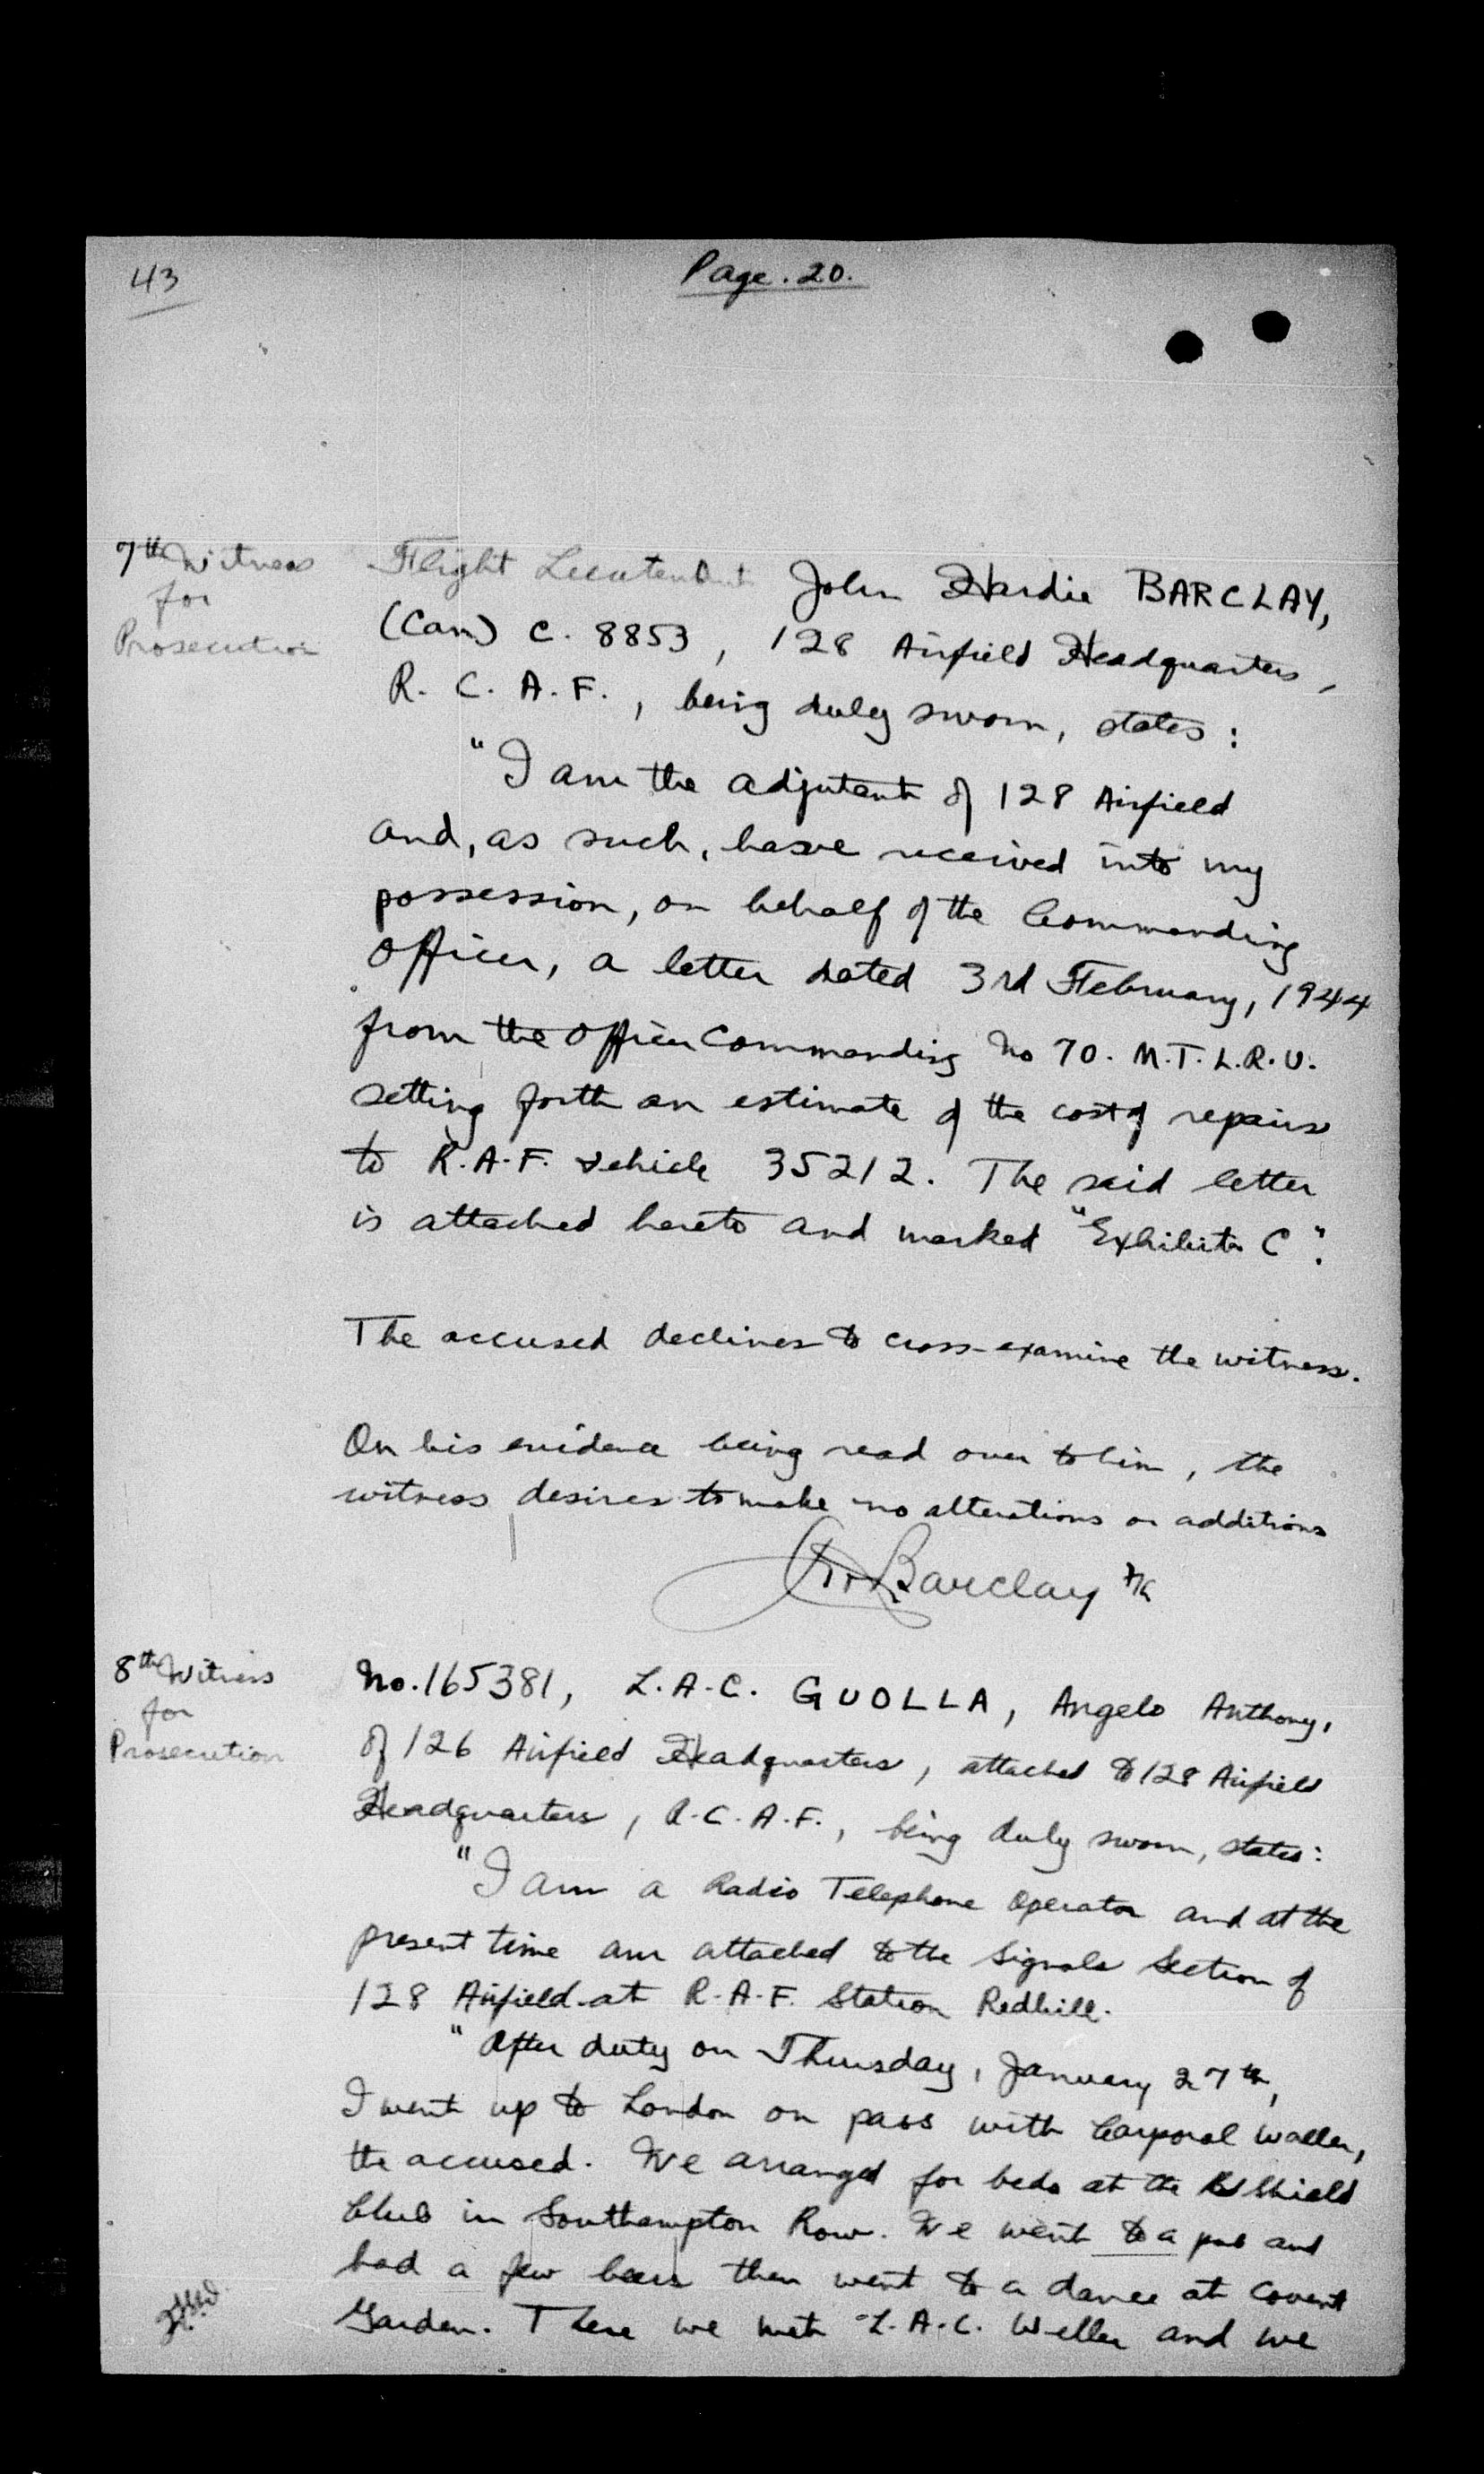 43
Page. 20.
7th Witness
for
Prosecution
Flight Lieutenant John Hardie BARCLAY,
(Can) C. 8853, 128 Airfield Headquarters,
R. C. A. F., being duly sworn, states:
"I am the adjutant of 128 Airfield
and, as such, have received into my
possession, on behalf of the Commanding
Officer, a letter dated 3rd February, 1944
from the Officer Commanding No 70. M.T.L.R.U.
setting forth an estimate of the cost of repairs
to R.A.F. vehicle 35212. The said letter
is attached hereto and marked "Exhibit C".
The accused declines to cross-examine the witness.
On his evidence being read over to him, the
witness desires to make no alterations or additions
Barclay F/L
8th Witness
for
Prosecution
No. 165381, L.A.C. GUOLLA, Angelo Anthony,
of 126 Airfield Headquarters, attached to 128 Airfield
Headquarters, R.C.A.F., being duly sworn, states:
"I am a Radio Telephone Operator and at the
present time am attached to the Signals Section of
128 Airfield at R.A.F. Station Redhill.
"After duty on Thursday, January 27th,
I went up to London on pass with Corporal Waller,
the accused. We arranged for beds at the Shield
Club in Southampton Row. We went to a pub and
had a few beers then went to a dance at Covent
Garden. There we met L.A.C. Weller and we